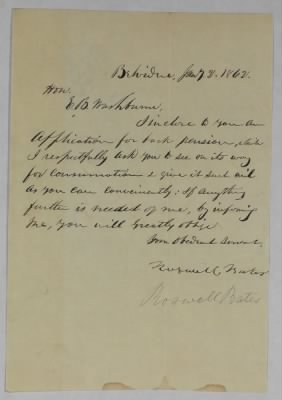 Belvidere, Jany 8, 1862.
Hon.
E. B. Washburne,
I inclose to you an
Application for back pension, which
I respectfully ask you to see on its way
for consummation & give it such aid
as you can conveniently: If anything
further is needed of me, by informing
me, you will greatly oblige
Your Obedient Servant,
Roswell Bates
Roswell Bates